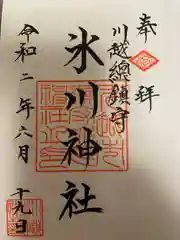 奉拝
川越總鎮守
氷川神社
令和二年六月
十九日